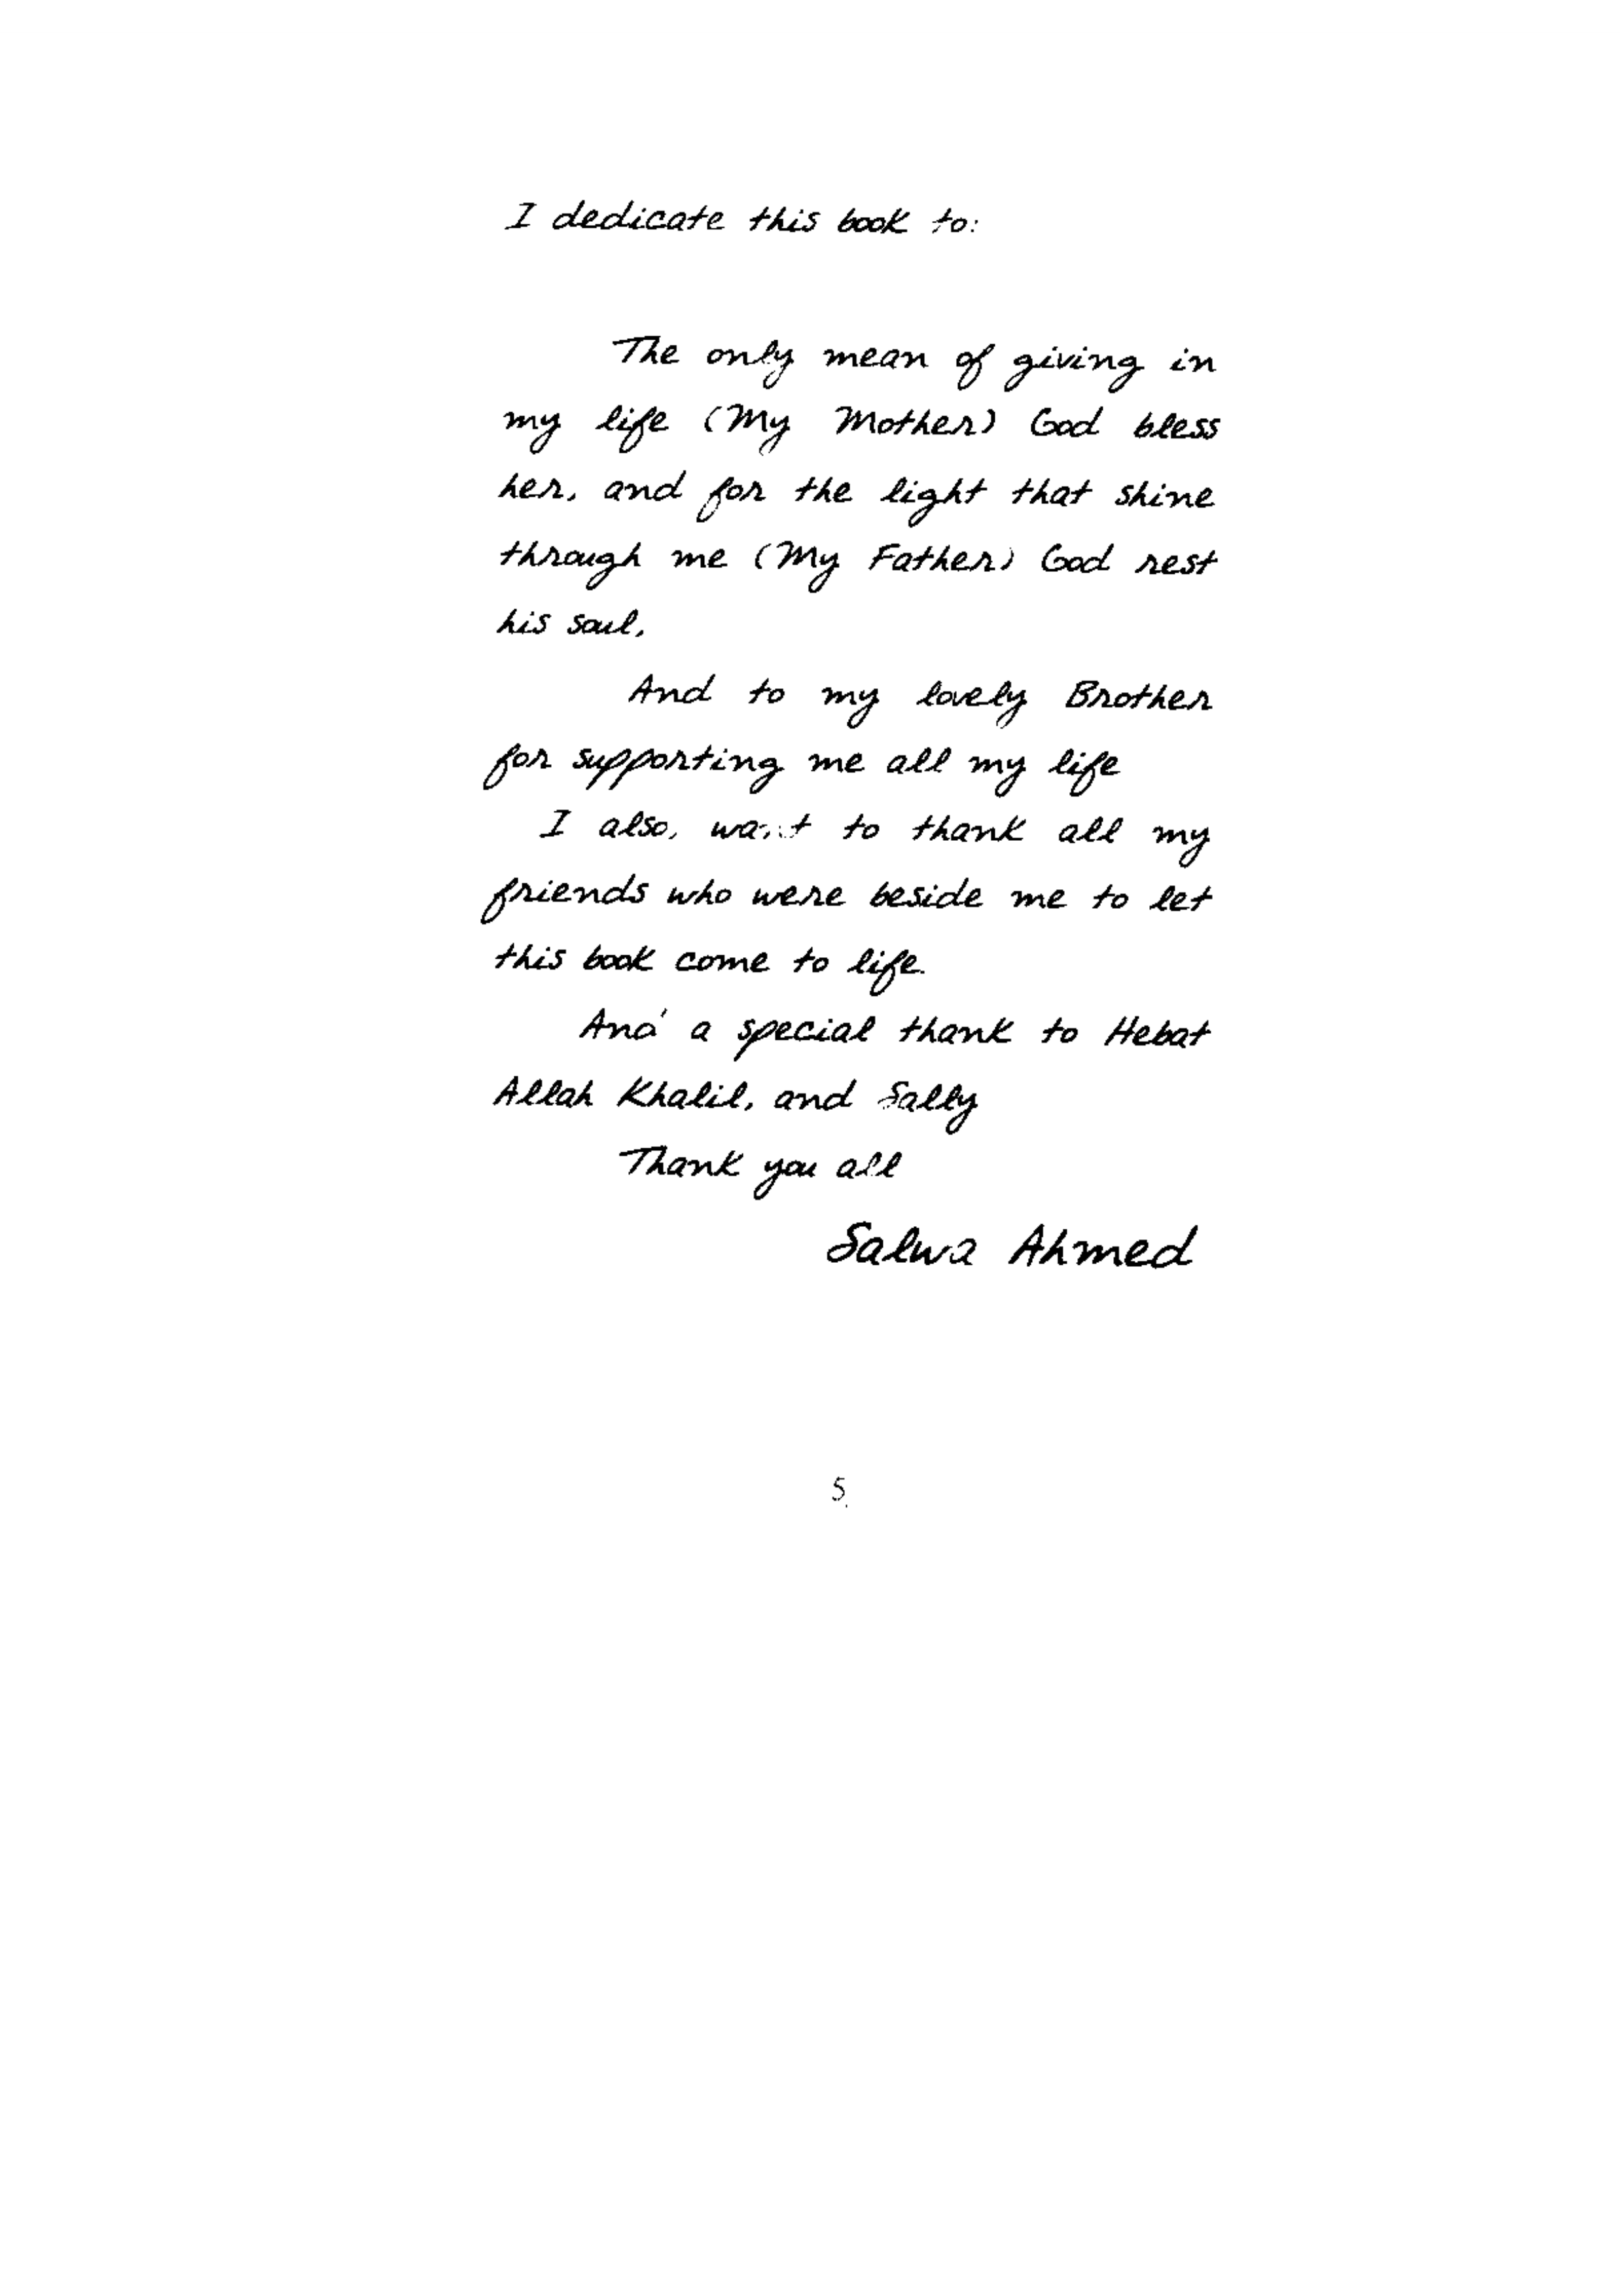 I dedicate this book to:
The only mean of giving in
my life (My Mother) God bless
her, and for the light that shine
through me (My Father) God rest
his soul,
And to my lovely Brother
for supporting me all my life
I also, want to thank all my
friends who were beside me to let
this book come to life.
And a special thank to Hebat
Allah Khalil, and Sally
Thank you all
Salwa Ahmed
5